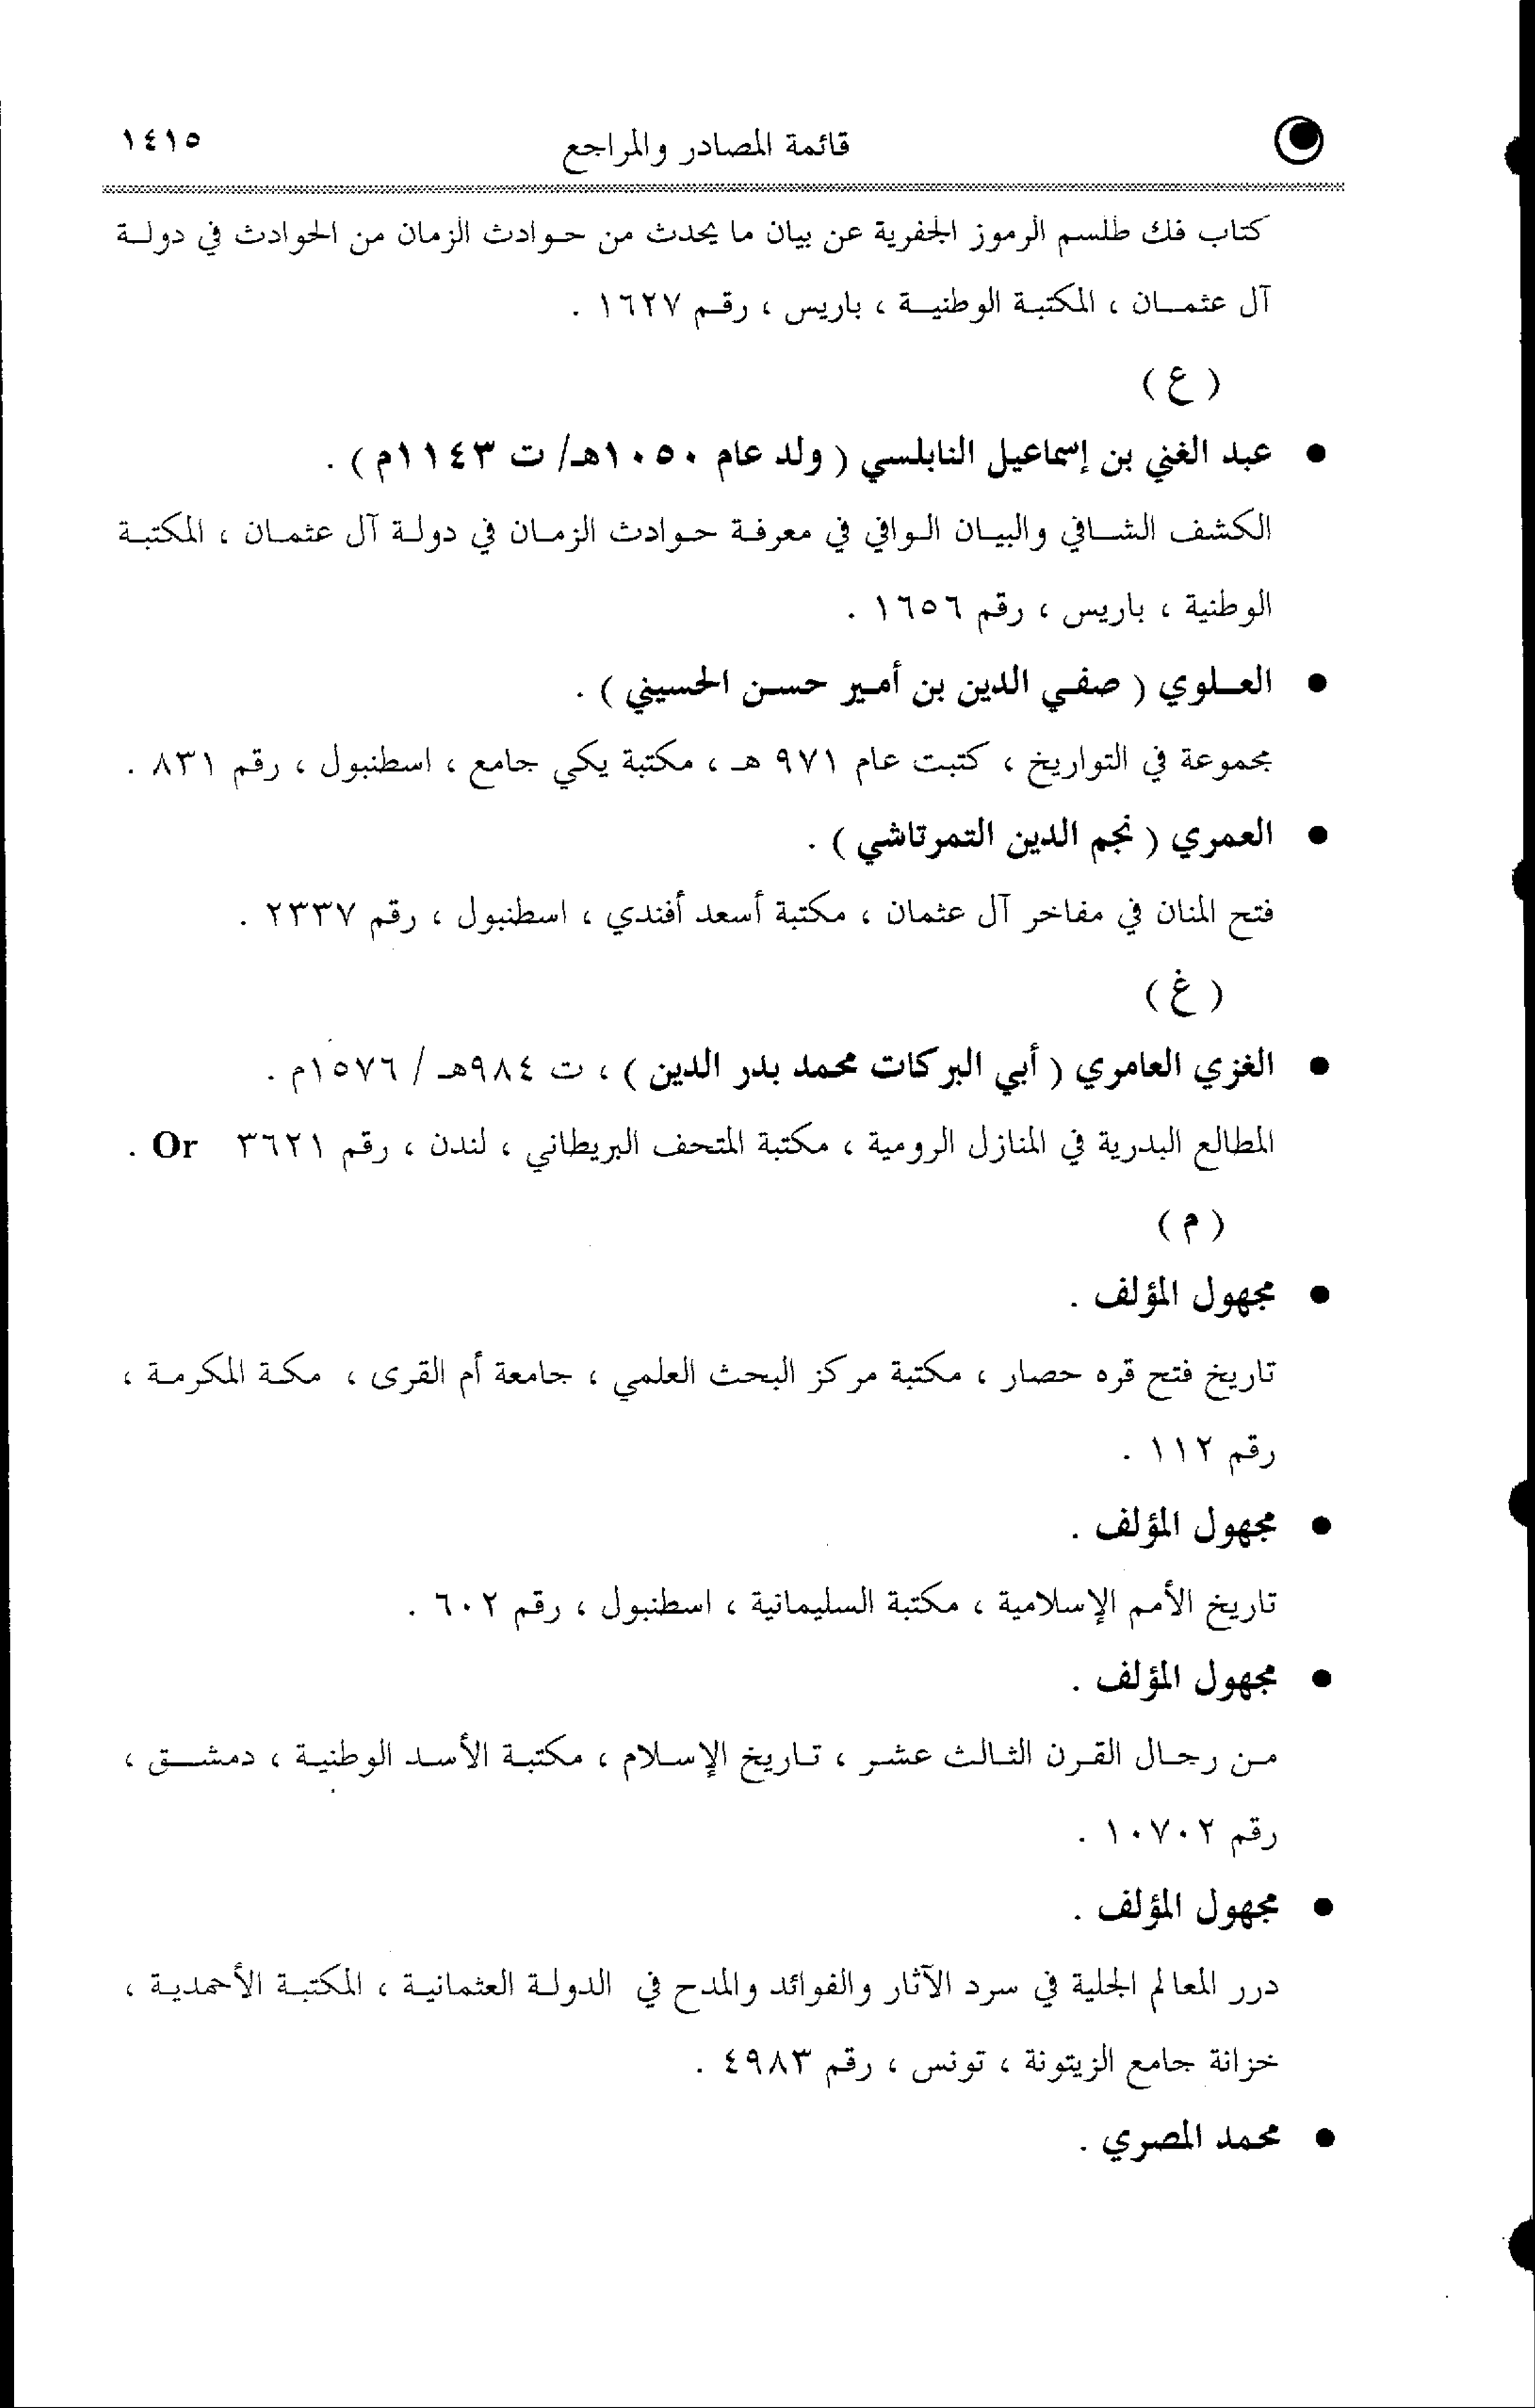 قائمة المصادر والمراجع ١٤١٥
كتاب فك طلسم الرموز الجفرية عن بيان ما يحدث من حوادث الزمان من الحوادث في دولة
آل عثمان ، المكتبة الوطنية ، باريس ، رقم ١٦٢٧ .
( ع )
● عبد الغني بن إسماعيل النابلسي ( ولد عام ١٠٥٠هـ/ ت ١١٤٣م ) .
الكشف الشافي والبيان الوافي في معرفة حوادث الزمان في دولة آل عثمان ، المكتبة
الوطنية ، باريس ، رقم ١٦٥٦ .
● العلوي ( صفي الدين بن أمير حسن الحسيني ) .
مجموعة في التواريخ ، كتبت عام ٩٧١ هـ ، مكتبة يكي جامع ، اسطنبول ، رقم ٨٣١ .
● العمري ( نجم الدين التمرتاشي ) .
فتح المنان في مفاخر آل عثمان ، مكتبة أسعد أفندي ، اسطنبول ، رقم ٢٣٣٧ .
( غ )
● الغزي العامري ( أبي البركات محمد بدر الدين ) ، ت ٩٨٤هـ / ١٥٧٦م .
المطالع البدرية في المنازل الرومية ، مكتبة المتحف البريطاني ، لندن ، رقم ٣٦٢١ Or .
( م )
● مجهول المؤلف .
تاريخ فتح قره حصار ، مكتبة مركز البحث العلمي ، جامعة أم القرى ، مكة المكرمة ،
رقم ١١٢ .
● مجهول المؤلف .
تاريخ الأمم الإسلامية ، مكتبة السليمانية ، اسطنبول ، رقم ٦٠٢ .
● مجهول المؤلف .
من رجال القرن الثالث عشر ، تاريخ الإسلام ، مكتبة الأسد الوطنية ، دمشق ،
رقم ١٠٧٠٢ .
● مجهول المؤلف .
درر المعالم الجلية في سرد الآثار والفوائد والمدح في الدولة العثمانية ، المكتبة الأحمدية ،
خزانة جامع الزيتونة ، تونس ، رقم ٤٩٨٣ .
● محمد المصري .